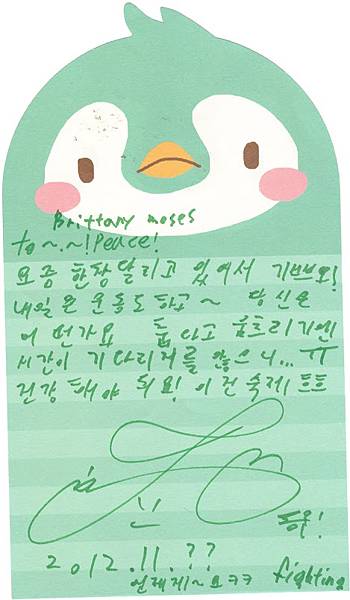 Brittany moses
to ~.~! Peace!
요즘 한창 달리고 있에서 기쁘요!
내일은 운동도 하고 ~ 당신은
어떤가요 춥다고 움츠리기엔
시간이 기다리저를 않으니... ㅠ
건강해야 되요! 이건 숙제 흐흐
신
2012.11.??
언제게~요ㅋㅋ fighting